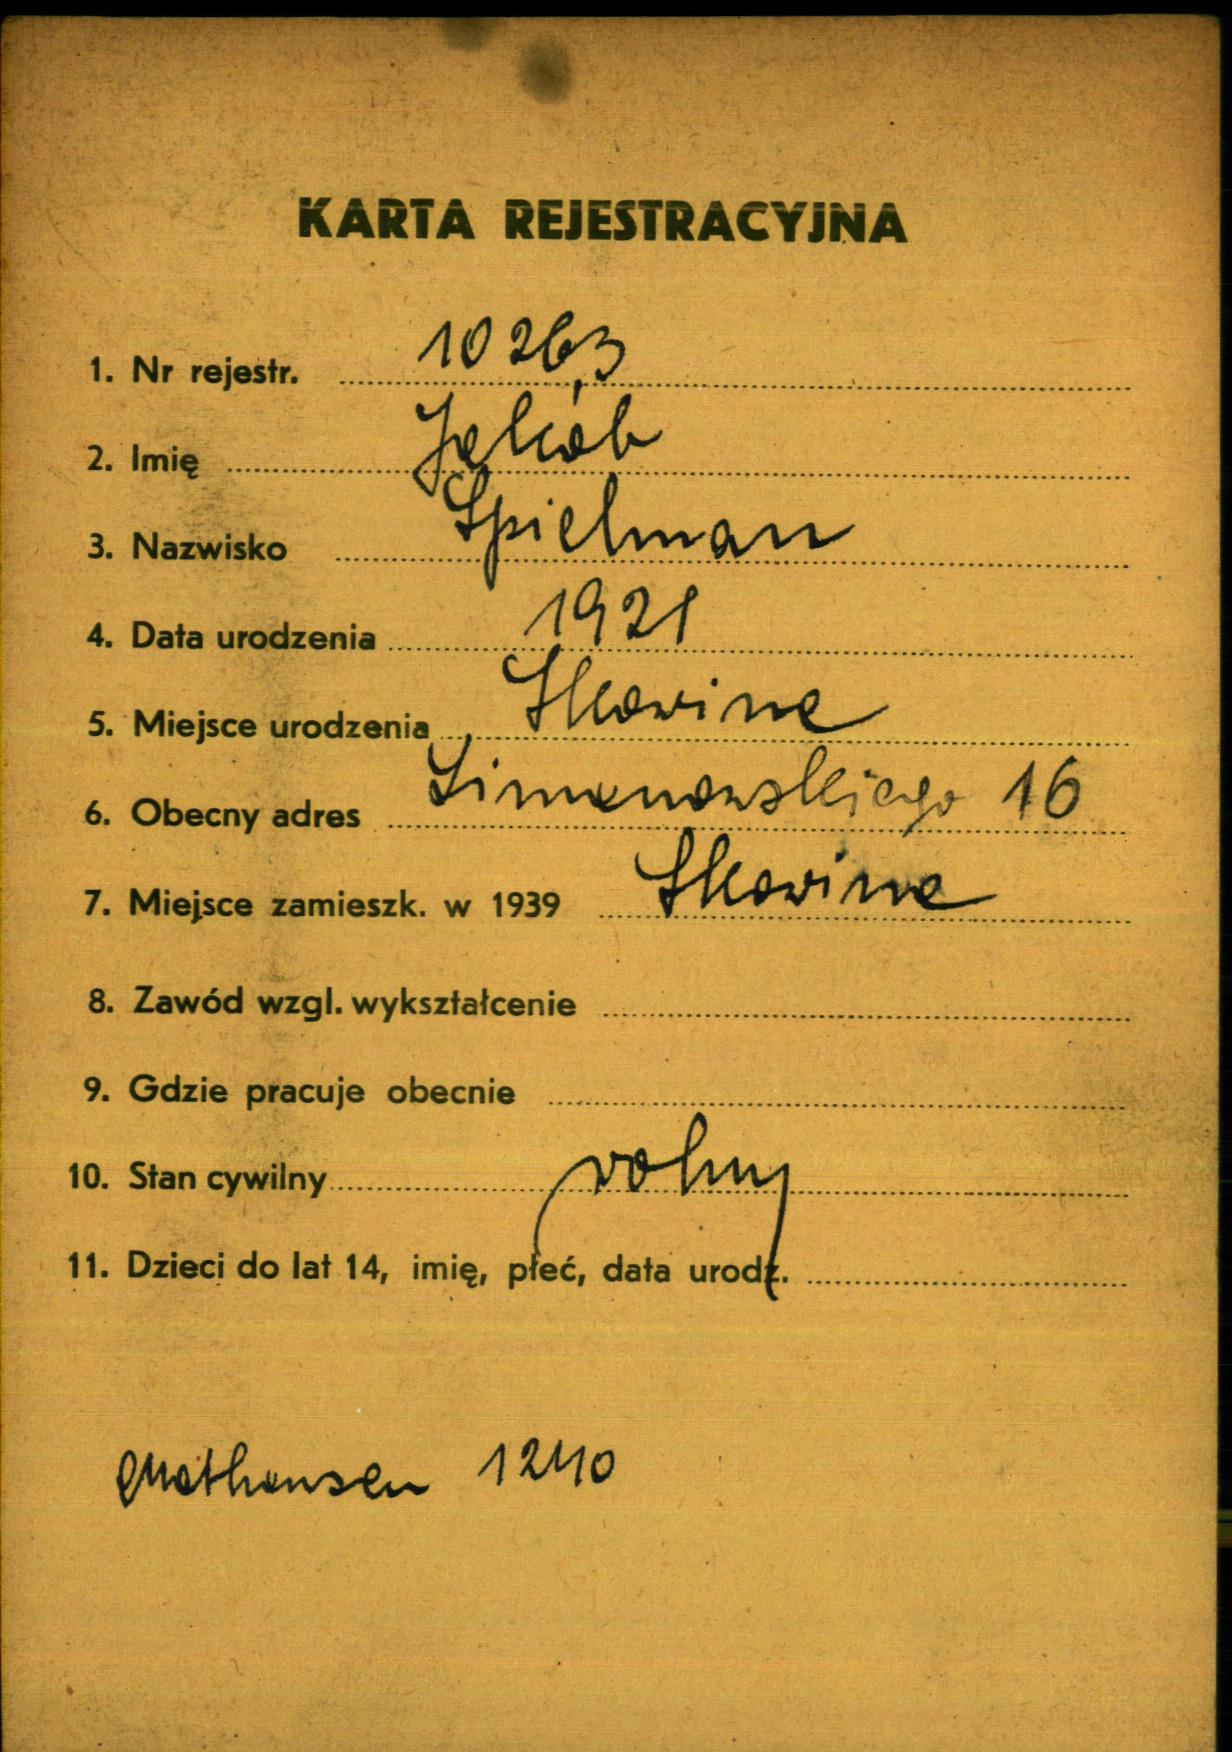 KARTA REJESTRACYJNA
1. Nr rejestr. 10263
2. Imię Jakób
3. Nazwisko Spielman
4. Data urodzenia 1921
5. Miejsce urodzenia Skawina
6. Obecny adres Limanowskiego 16
7. Miejsce zamieszk. w 1939 Skawina
8. Zawód wzgl. wykształcenie
9. Gdzie pracuje obecnie
10. Stan cywilny wolny
11. Dzieci do lat 14, imię, płeć, data urodz.
Mathausen 1240